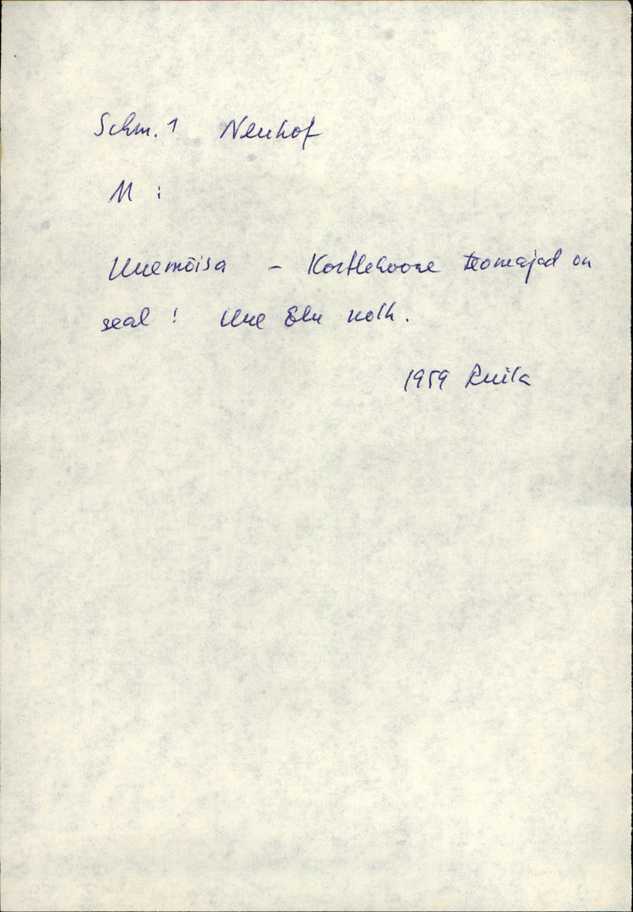 Schm. 1 Neuhof
M :
Uuemõisa – teomajad on
seal ! Uue Elu kolh.
1959 Ruila